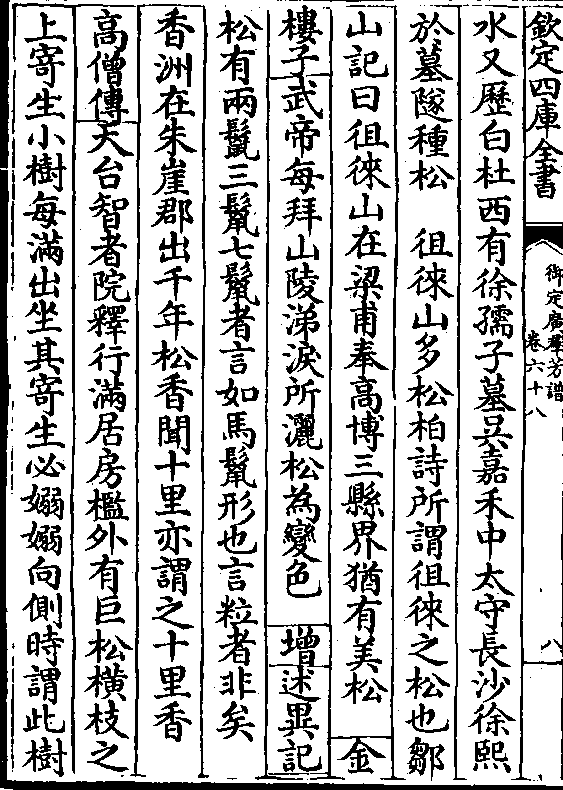 欽定四庫全書
御定廣羣芳譜
卷六十八
八
水又歷白杜西有徐孺子墓吳嘉禾中太守長沙徐熙
於墓隧種松　徂徠山多松柏詩所謂徂徠之松也鄒
山記曰徂徠山在梁甫奉高博三縣界猶有美松　金
樓子武帝每拜山陵涕淚所灑松為變色　增述異記
松有兩鬛三鬛七鬛者言如馬鬛形也言粒者非矣
香洲在朱崖郡出千年松香聞十里亦謂之十里香
高僧傳天台智者院釋行滿居房檻外有巨松横枝之
上寄生小樹每滿出坐其寄生必嫋嫋向側時謂此樹